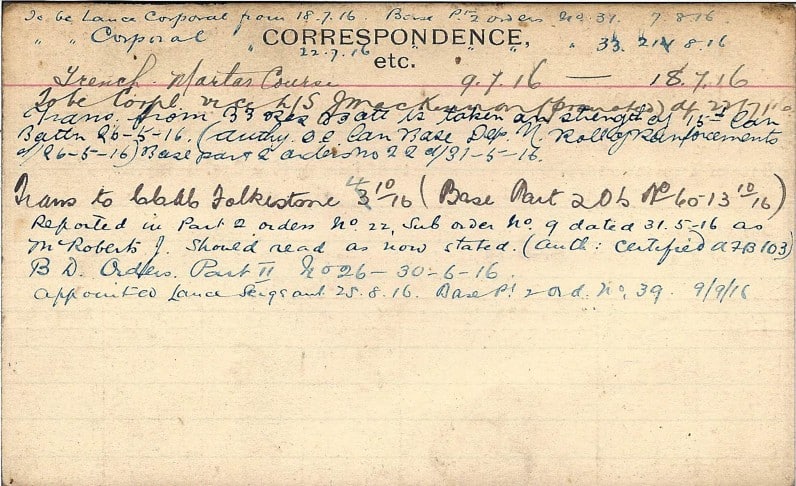 To be Lance Corporal from 18.7.16. Base Pt 2 orders No. 31. 7.8.16
" " Corporal " 22.7.16 " " 33. 21.8.16
CORRESPONDENCE,
etc.
Trench Mortar Course 9.7.16 — 18.7.16
To be Corpl. vice L/S J MacKinnon (promoted) d/
Trans. from 33 Res Batt is taken on strength of 15th Can
Battn 26-5-16. (Authy. O C Can Base Dep. N. Roll of Reinforcements
d/26-5-16) Base part 2 orders no 22 d/31-5-16.
Trans to Folkestone 10/16 (Base Part 2 Os No 60-13 10/16)
Reported in Part 2 orders No. 22, Sub order No. 9 dated 31.5-16 as
McRoberts J. Should read as now stated. (Auth: Certified AFB 103)
B D. Orders. Part II No 26 - 30-6-16.
Appointed Lance Sergeant 25.8.16. Base Pt 2 Ord. No. 39. 9/9/16